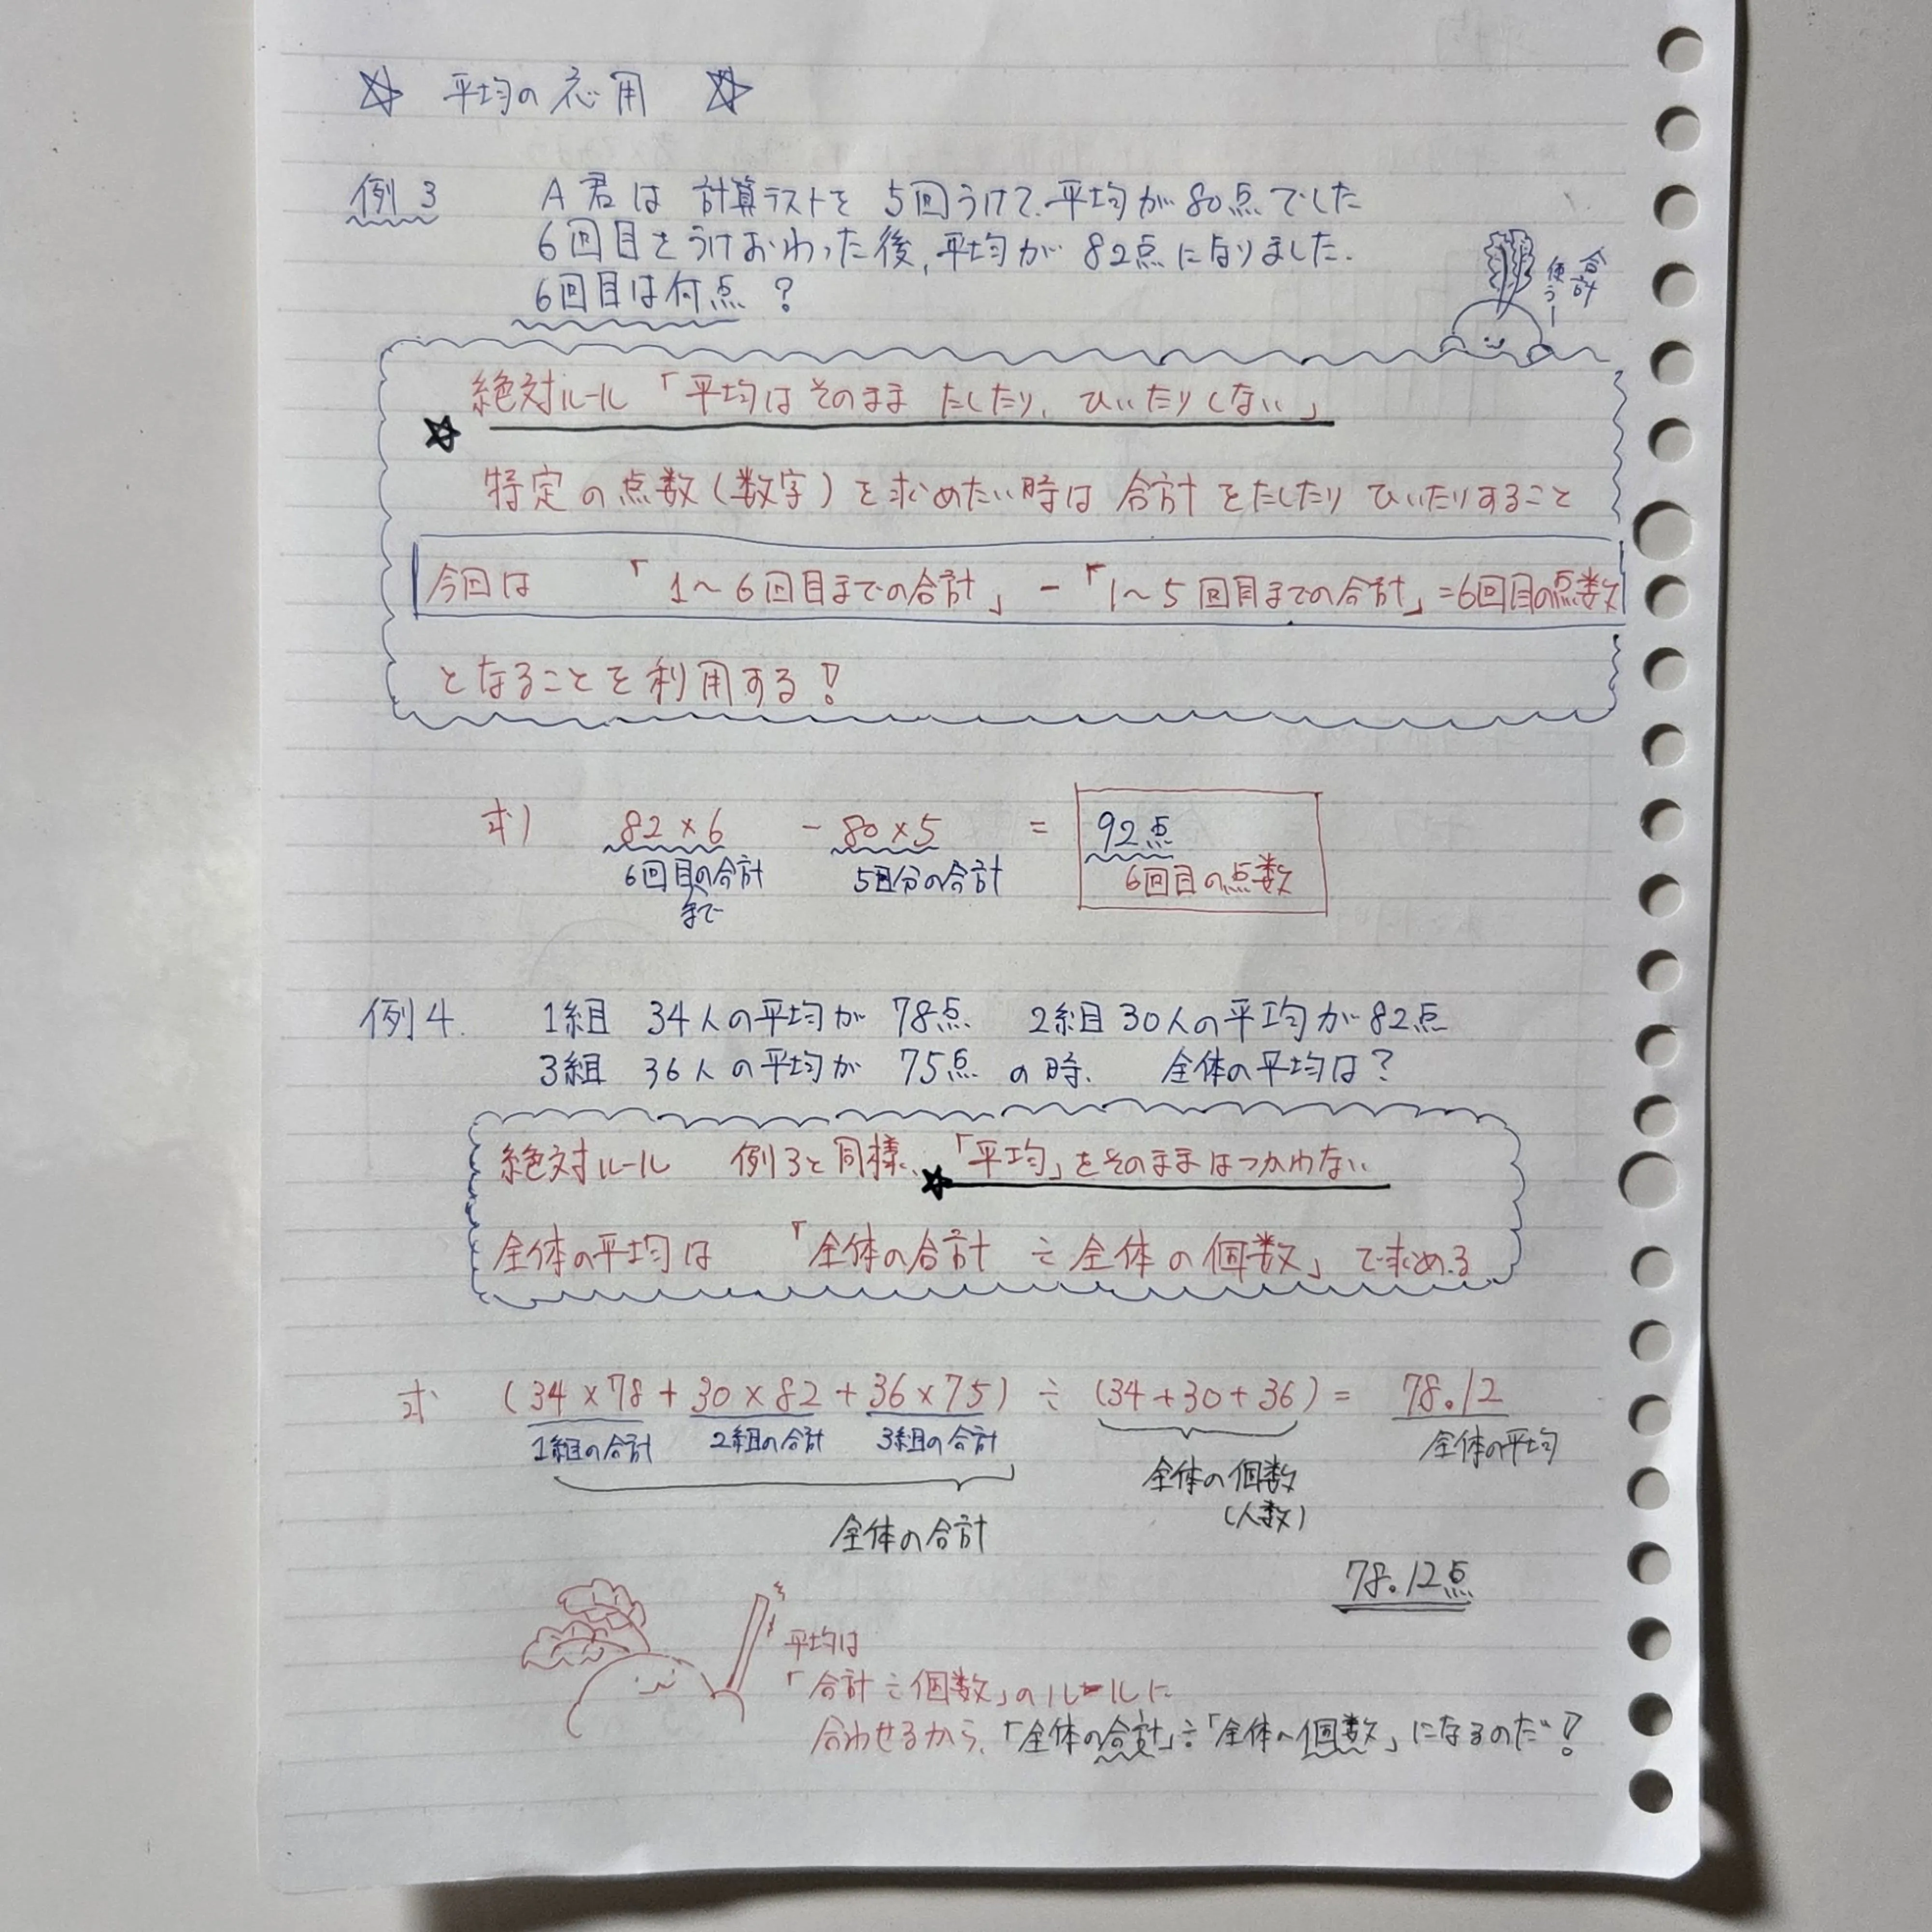 ☆ 平均の応用 ☆
例3 A君は計算テストを5回うけて、平均が80点でした
6回目をうけおわった後、平均が82点になりました.
6回目は何点?
合計
使うー
絶対ルール「平均はそのままたしたり、ひいたりしない」
☆
特定の点数(数字)を求めたい時は合計をたしたりひいたりすること
今回は 「1〜6回目までの合計」-「1〜5回目までの合計」=6回目の点数
となることを利用する!
求) 82×6 - 80×5 = 92点
6回目の合計 5回分の合計 6回目の点数
まで
例4. 1組 34人の平均が 78点 2組30人の平均が82点
3組 36人の平均が 75点 の時、 全体の平均は?
絶対ルール 例3と同様、★「平均」をそのままはつかわない
全体の平均は 「全体の合計÷全体の個数」で求める
求 (34×78+30×82+36×75)÷(34+30+36)= 78.12
1組の合計 2組の合計 3組の合計 全体の平均
全体の個数
(人数)
全体の合計
78.12点
平均は
「合計÷個数」のルールに
合わせるから、「全体の合計」÷「全体の個数」になるのだ!